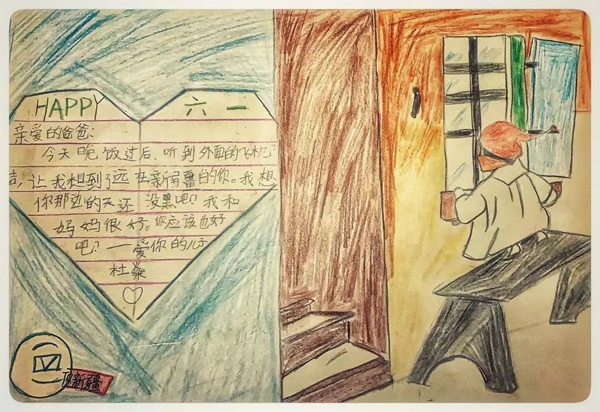 HAPPY 六一
亲爱的爸爸:
今天晚饭过后,听到外面的飞机
声,让我想到了远在新疆的你。我想
你那边的天还没黑吧?我和
妈妈很好。你应该也好
吧?——爱你的儿子
杜
新疆